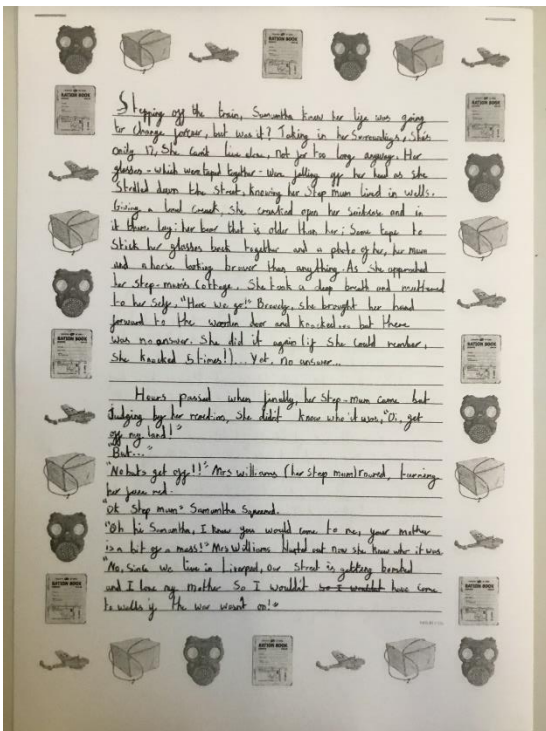 Stepping off the train, Samantha knew her life was going
to change forever, but was it? Taking in her surroundings, She's
only 12, She can't live alone, not for too long anyway. Her
glasses - which were taped together - were falling off her head as she
Strolled down the Street, knowing her Step mum lived in wells.
Giving a loud creack, She creacked open her suitcase and in
it there lay: her bear that is older than her; Some tape to
Stick her glasses back together and a photo of her, her mum
and a horse looking braver than anything. As she approched
her step-mum's cottage, She took a deep breath and muttered
to her self, "Here we go!" Bravely, she brought her hand
forward to the wooden door and knocked... but there
was no answer. She did it again (if She could rember,
She knocked 5 times!)... Yet, no answer...
Hours passed when finally, her Step-mum came but
Judging by her reaction, She didn't know who it was, "Oi, get
off my land!"
But..."
"No buts get off!!" Mrs williams (her step mum) roured, turning
her face red.
"Ok Step mum" Samantha Squeaked.
"Oh hi Samantha, I knew you would come to me, your mother
is a bit of a mess!" Mrs Williams out now she knew who it was.
"No, Since we live in Liverpool, our Street is getting bombed
and I love my mother So I wouldn't so I wouldn't have come
to wells if the war wasn't on!"
RATION BOOK